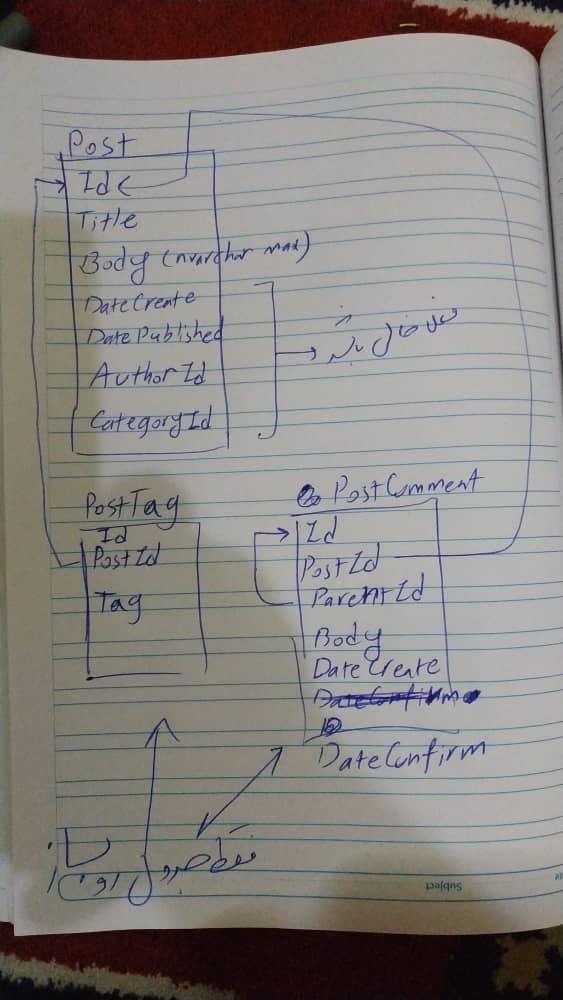 Post
Id
Title
Body (nvarchar max)
DateCreate
DatePublished
AuthorId
CategoryId
PostTag
Id
PostId
Tag
PostComment
Id
PostId
ParentId
Body
DateCreate
DateConfirm
DateConfirm
فقط جدول
Subject